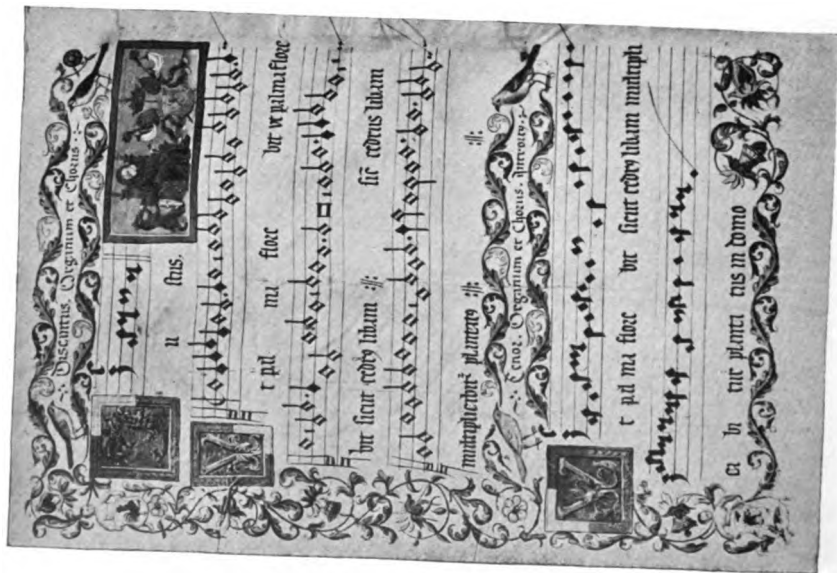 Discantus. Organum et Chorus
u stus.
V t pal ma flore bit vt palma flore
bit sicut cedrꝰ libani sic̄ cedrus libani
plantatꝰ
Tenor. Organum et Chorus.
V t pal ma flore bit sicut cedrꝰ libani multipli
bi tur planta tus in domo